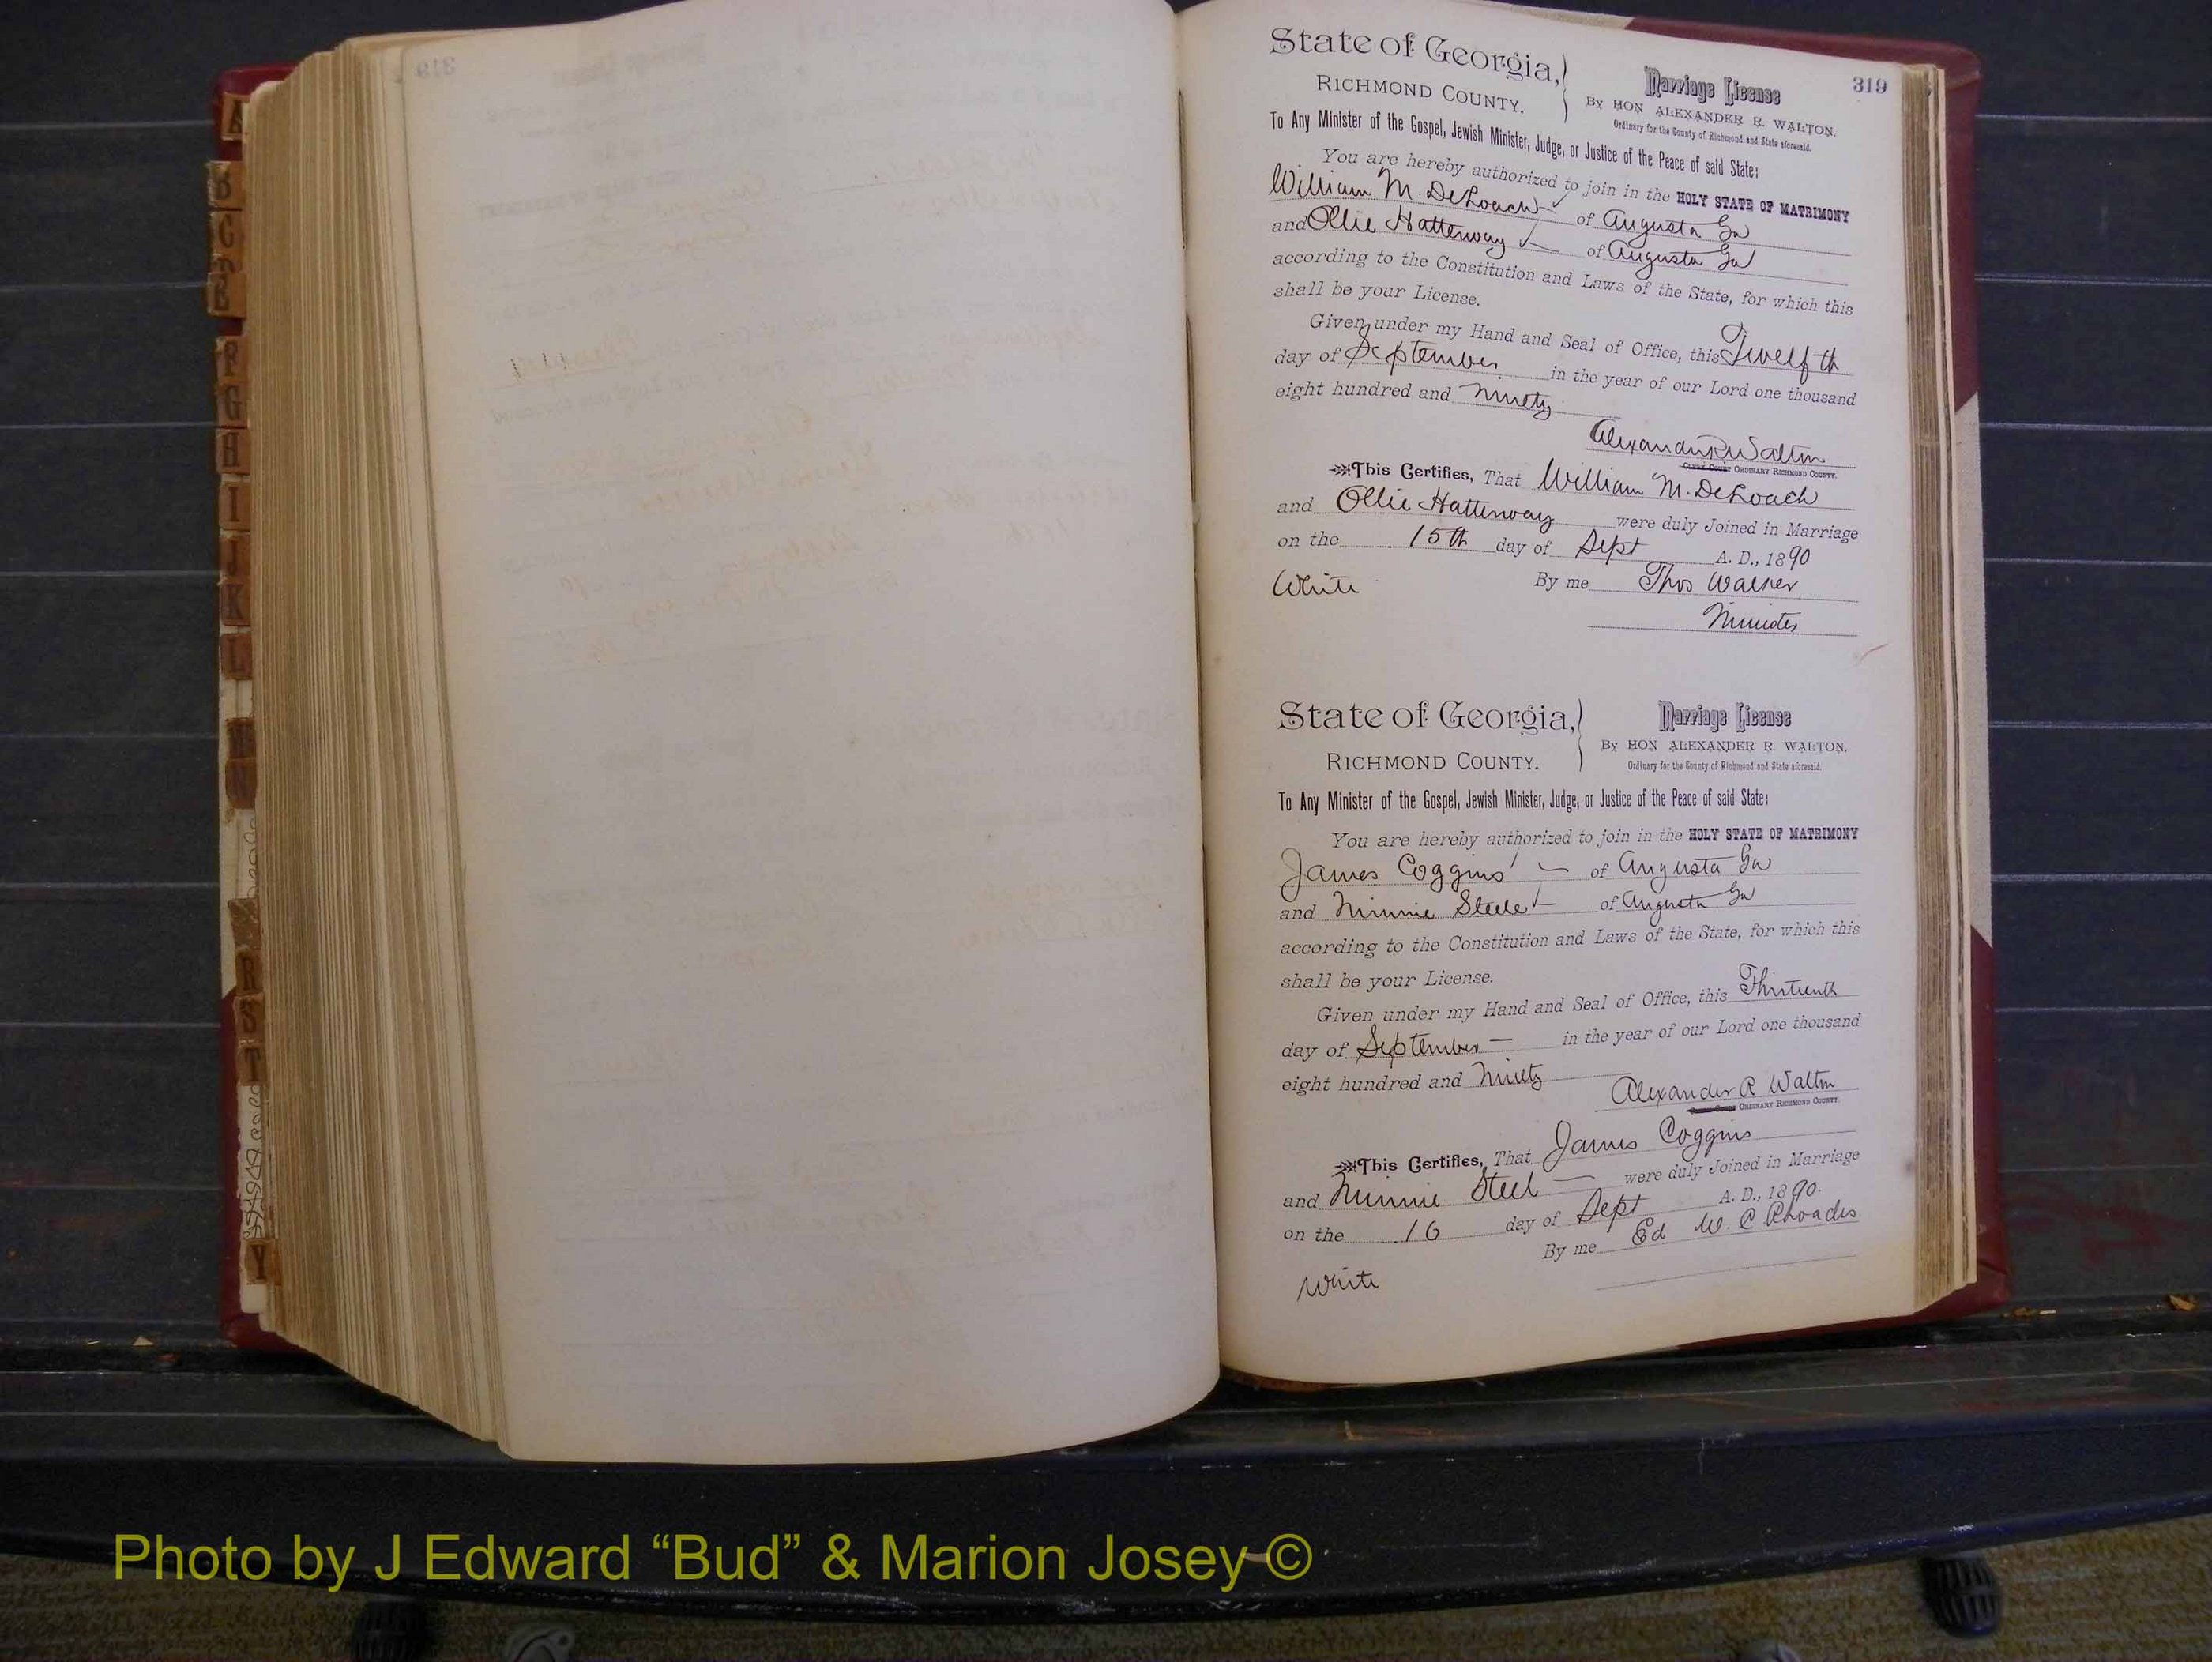 319
A
B
C
E
F
G
H
I
J
K
L
M
N
R
S
T
Y
319
State of Georgia,
RICHMOND COUNTY.
Marriage License
BY HON ALEXANDER R. WALTON,
Ordinary for the County of Richmond and State aforesaid.
To Any Minister of the Gospel, Jewish Minister, Judge, or Justice of the Peace of said State:
You are hereby authorized to join in the HOLY STATE OF MATRIMONY
William M. DeLoach of Augusta Ga
and Ollie Hattenway of Augusta Ga
according to the Constitution and Laws of the State, for which this
shall be your License.
Given under my Hand and Seal of Office, this Twelfth
day of September in the year of our Lord one thousand
eight hundred and ninety
Alexander R Walton
ORDINARY RICHMOND COUNTY.
This Certifies, That William M. DeLoach
and Ollie Hattenway were duly Joined in Marriage
on the 15th day of Sept A. D., 1890
White By me Thos Walker
Minister
State of Georgia,
RICHMOND COUNTY.
Marriage License
BY HON ALEXANDER R. WALTON,
Ordinary for the County of Richmond and State aforesaid.
To Any Minister of the Gospel, Jewish Minister, Judge, or Justice of the Peace of said State:
You are hereby authorized to join in the HOLY STATE OF MATRIMONY
James Coggins of Augusta Ga
and Minnie Steele of Augusta Ga
according to the Constitution and Laws of the State, for which this
shall be your License.
Given under my Hand and Seal of Office, this Thirteenth
day of September — in the year of our Lord one thousand
eight hundred and ninety
Alexander R Walton
ORDINARY RICHMOND COUNTY.
This Certifies, That James Coggins
and Minnie Steel — were duly Joined in Marriage
on the 16 day of Sept A. D., 1890.
By me Ed W. C Rhoades
White
Photo by J Edward “Bud” & Marion Josey ©